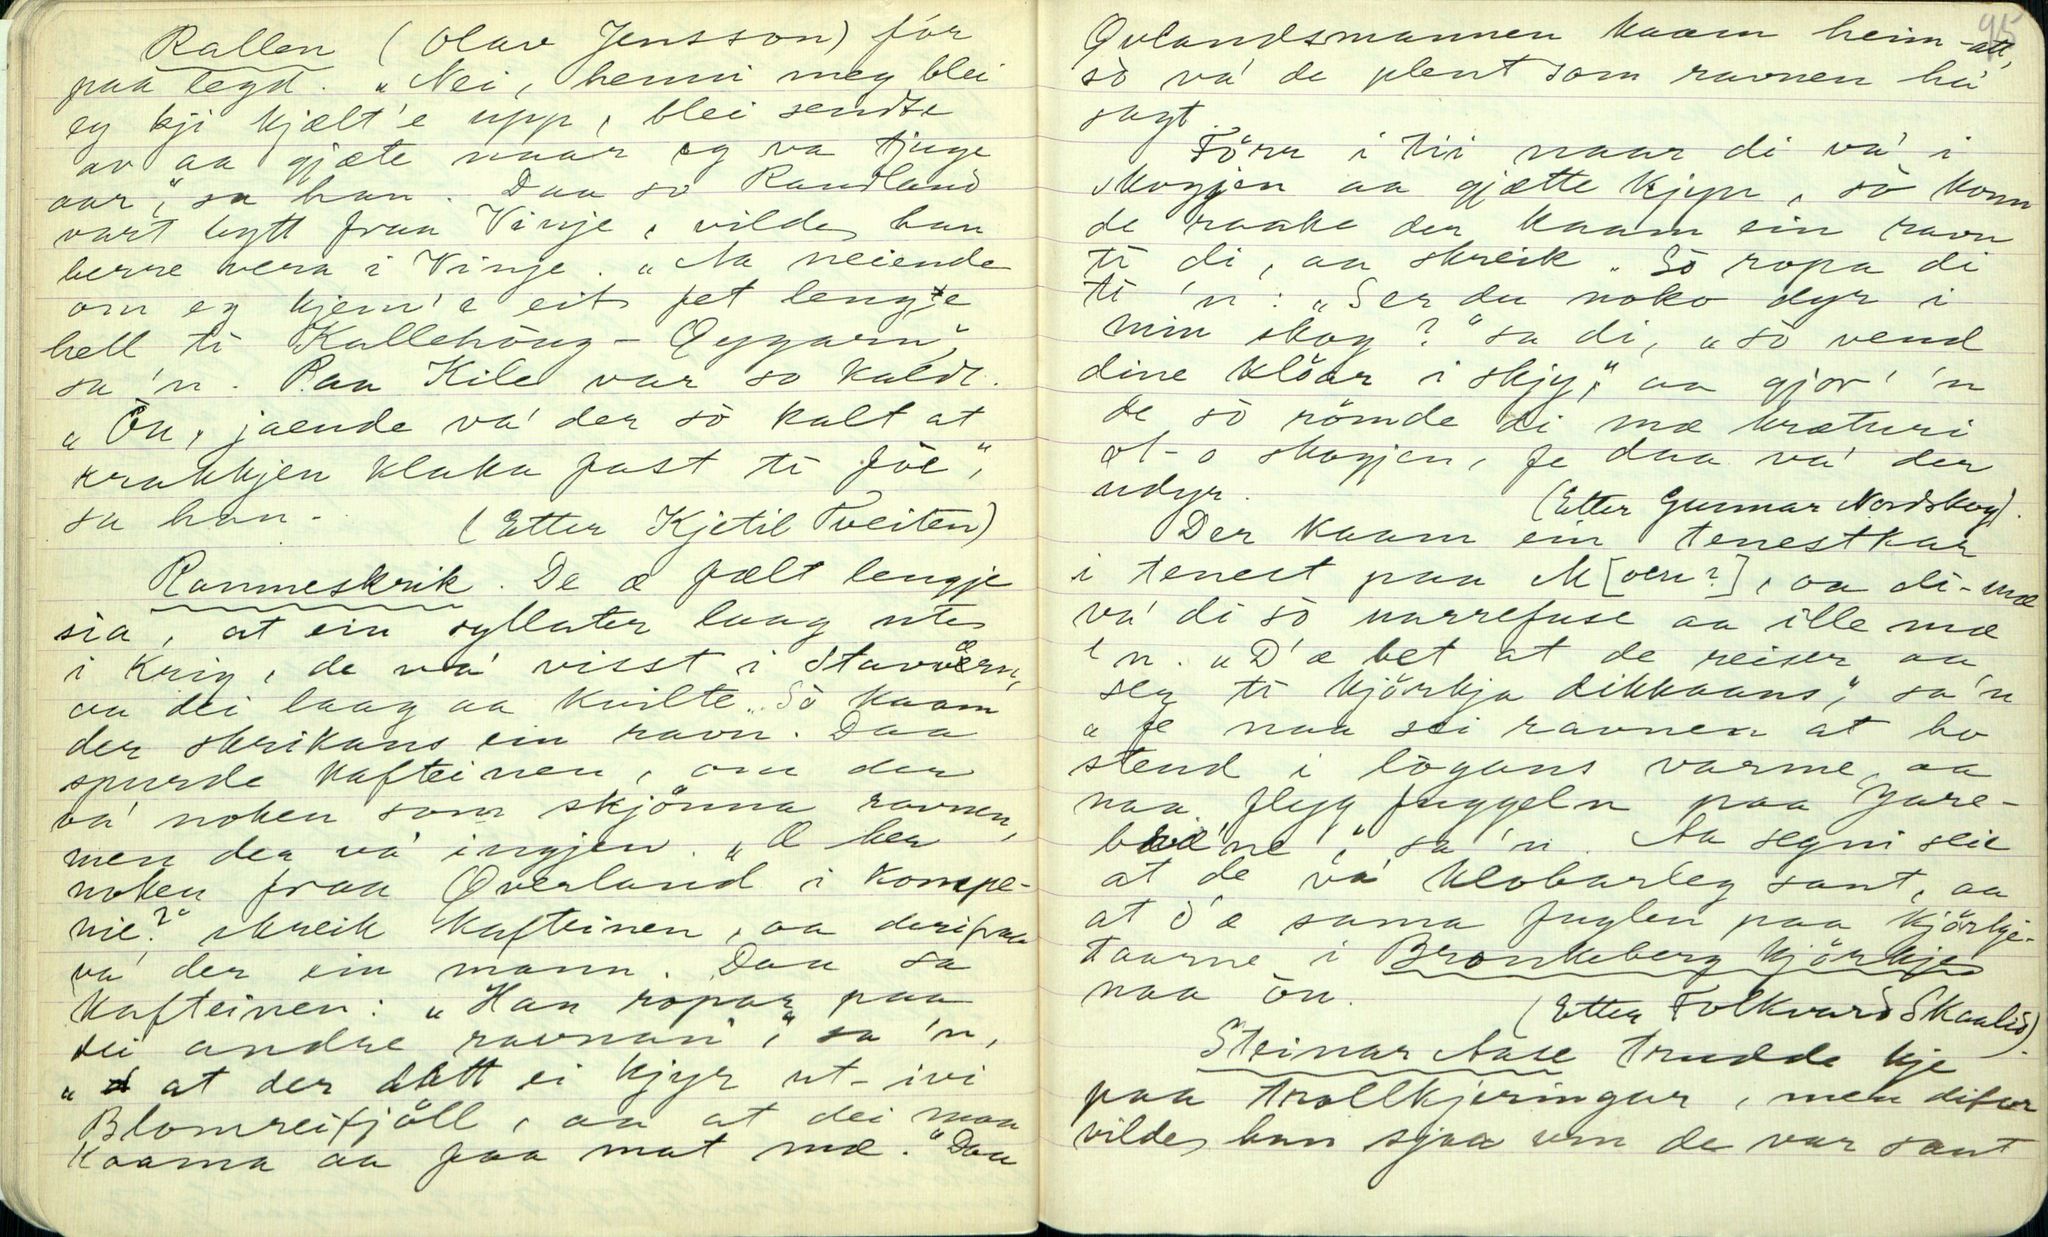 Rallen (Olav Jensson) fór
paa legd. "Nei, henni meg blei
eg kji kjælt'e upp, blei sendte
av aa gjæte naar eg va tjuge
aar", sa han. Daa so Raudland
vart bytt fraa Vinje, vilde han
berre vera i Vinje. "Aa neiende
om eg kjem'e eit fet lengte
hell ti Kallehöug-Öygarn",
sa 'n. Paa Kile var so kaldt.
"Öu, jaende va' der sò kalt at
krakkjen klaka fast ti föe",
sa han. (Etter Kjetil Tveiten)
Ramneskrik. De æ fælt lengje
sia, at ein syllater laag ute
i Krig, de va' visst i Stavværn,
aa dei laag aa kvilte. Sò kaam
der skrikans ein ravn. Daa
spurde kafteinen, om der
va' noken som skjönna ravnen,
men der va' ingjen. "Æ her
noken fraa Øverland i Kompe-
nie?" skreik kafteinen, aa derifraa
va' der ein mann. Daa sa
kafteinen: "Han ropar paa
dei andre ravnan", sa 'n,
"at der datt ei kjyr ut-ivi
Blomreifjöll, aa at dei maa
kaama aa faa mat mæ." Daa
95
Øvlandsmannen kaam heim-att,
sò va' de plent som ravnen ha'
sagt.
Förr i tii naar di va' i
skogjen aa gjætte kjyr, sò konn
de raake der kaam ein ravn
ti di, aa skreik. Sò ropa di
ti 'n: "Ser du noko dyr i
min skog?" sa di, "sò vend
dine klöar i skjy", aa gjor' 'n
de sò römde di mæ kræturi
ot-o skogjen, fe daa va' der
udyr. (Etter Gunnar Nordskog).
Der kaam ein tenestkar
i tenest paa M[oen?], aa di-mæ
va' di sò narrefuse aa ille mæ
'n. "D'æ bet at de reiser aa
seg ti kjörkja dikkaans", sa 'n
"fe naa sei ravnen at ho
stend i lògans varme, aa
naa flyg fuggeln paa Gare-
bræ'ne", sa 'n. Aa segni seie
at de va' klobarleg sant, aa
at d'æ sama fuglen paa kjörkje-
taarne i Bronkeberg kjörkje
naa òu. (Etter Folkvard Skaalid).
Steinar Aase trudde kje
paa trollkjeringar, men difor
vilde han sjaa um de var sant